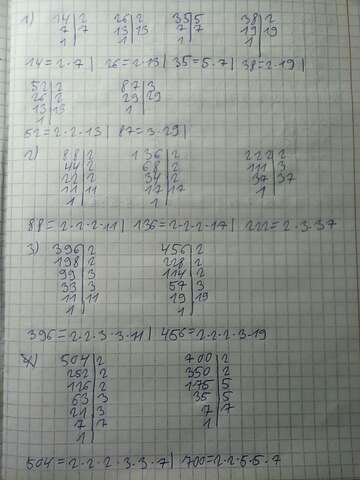 1) 14|2 26|2 35|5 38|2
7|7 13|13 7|7 19|19
1| 1| 1| 1|
14=2·7| 26=2·13| 35=5·7| 38=2·19|
52|2 87|3
26|2 29|29
13|13 1|
1|
52=2·2·13| 87=3·29|
2) 88|2 136|2 222|2
44|2 68|2 111|3
22|2 34|2 37|37
11|11 17|17 1|
1| 1|
88=2·2·2·11| 136=2·2·2·17| 222=2·3·37
3) 396|2 456|2
198|2 228|2
99|3 114|2
33|3 57|3
11|11 19|19
1| 1|
396=2·2·3·3·11| 456=2·2·2·3·19
4) 504|2 700|2
252|2 350|2
126|2 175|5
63|3 35|5
21|3 7|7
7|7 1|
1|
504=2·2·2·3·3·7| 700=2·2·5·5·7